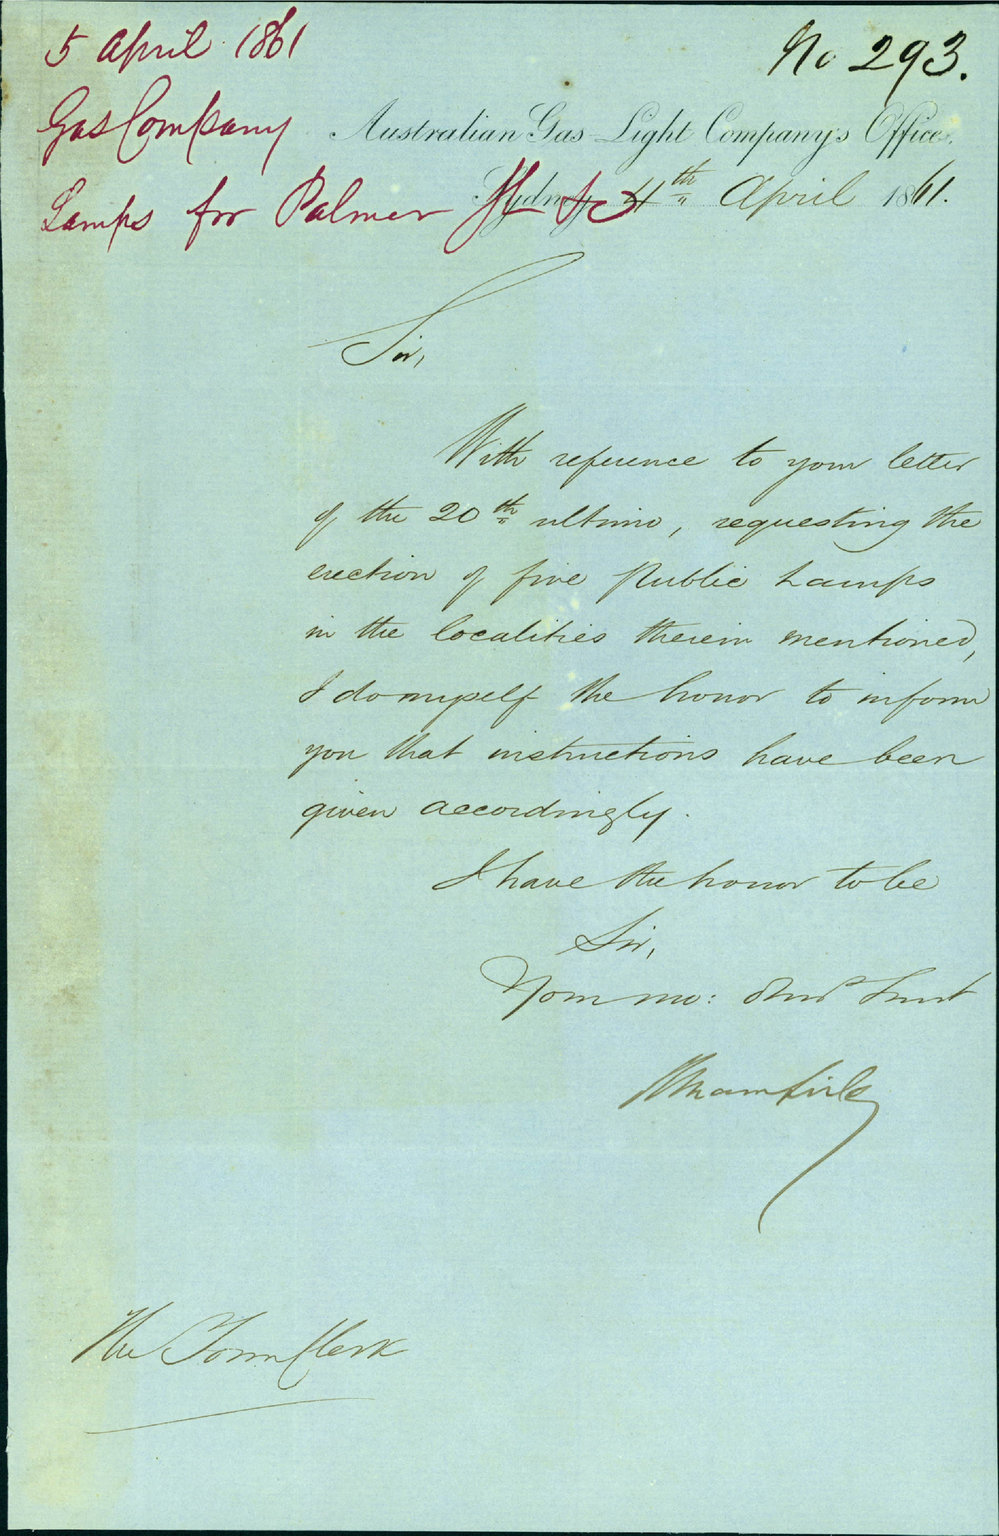 5 April 1861
No 293.
Gas Company
Australian Gas Light Company's Office.
Sydney 4th April 1861.
Lamps for Palmer St &c
Sir,
With reference to your letter
of the 20th ultimo, requesting the
erection of five Public Lamps
in the localities therein mentioned,
I do myself the honor to inform
you that instructions have been
given accordingly.
I have the honor to be
Sir,
Your mo: Obed Servt
The Town Clerk